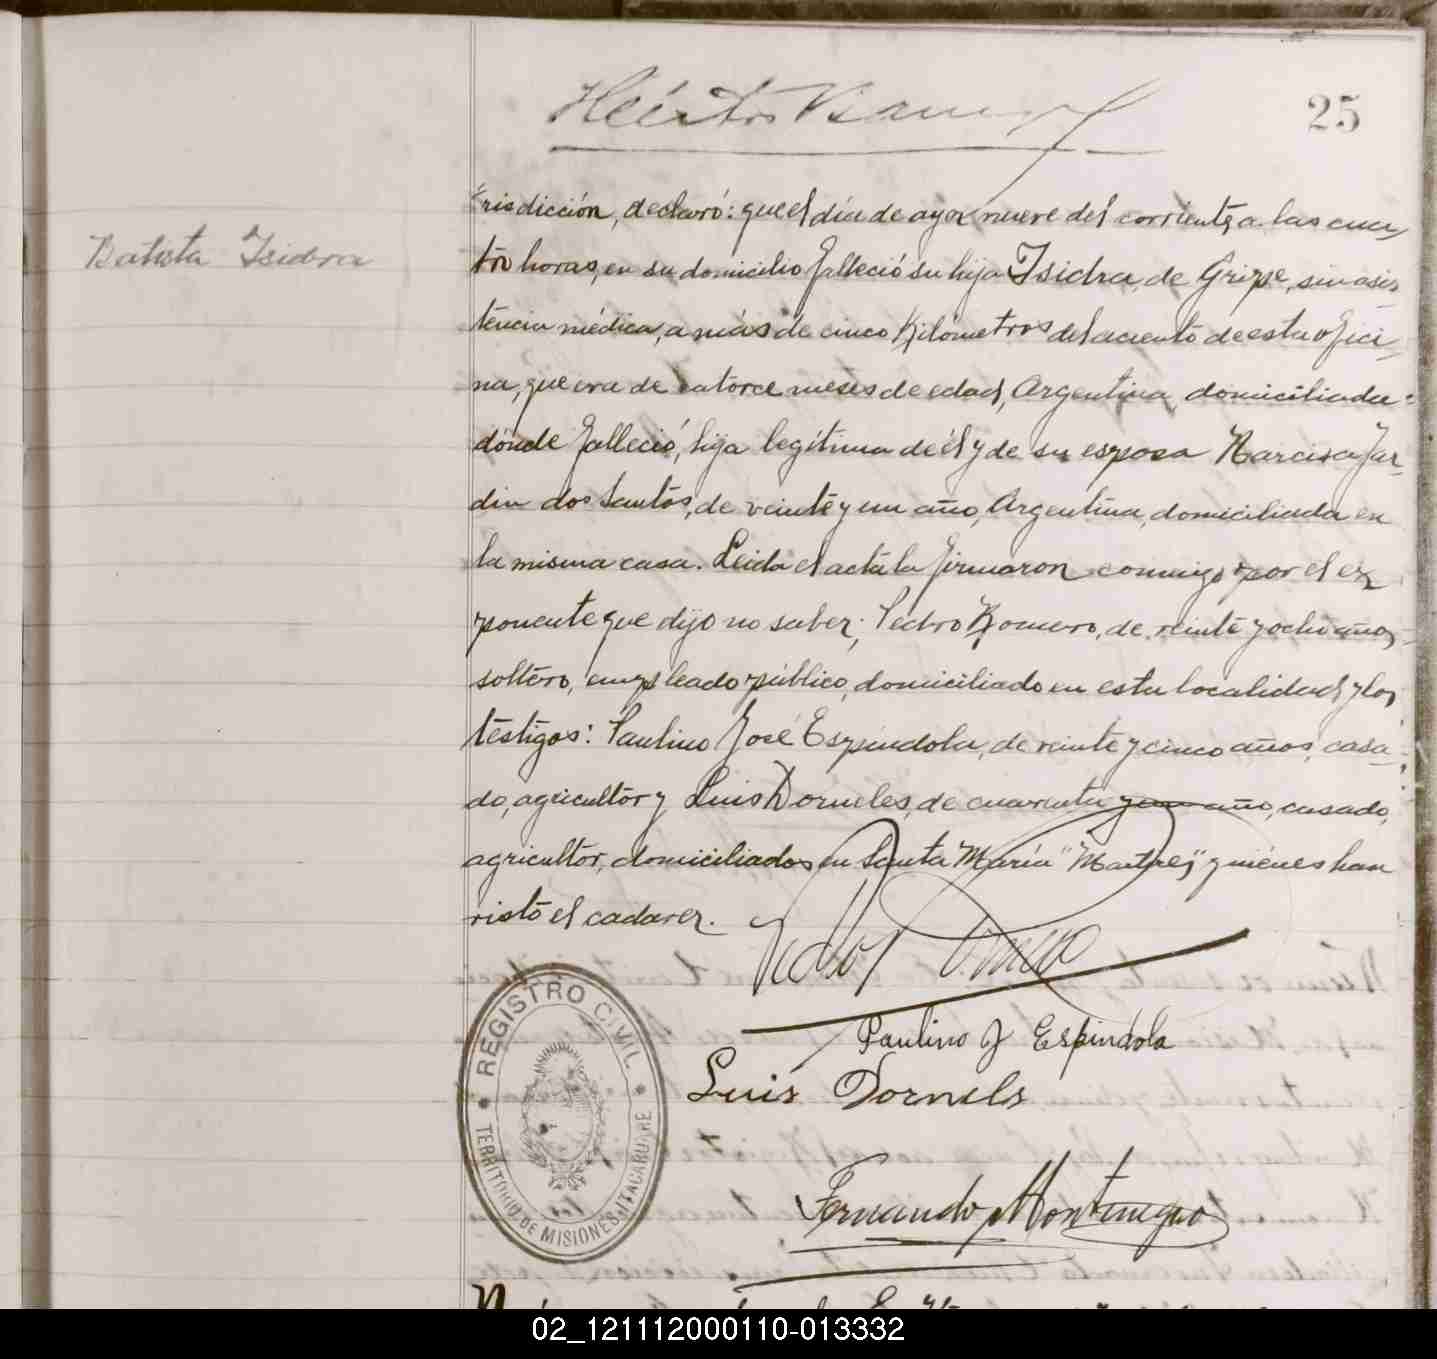 Héctor
25
Batista Isidra
risdicción, declaró: que el día de ayer nueve del corriente, a las cua,
tro horas, en su domicilio falleció su hija Isidra, de Gripe, sin asis,
tencia médica, a más de cinco Kilómetros del aciento de esta ofici,
na, que era de catorce meses de edad, Argentina, domiciliada
dónde falleció, hija legítima de él y de su esposa Narcisa Jar-
din dos Santos, de veinte y un año, Argentina, domiciliada en
la misma casa. Leida el acta la firmaron conmigo por el ex
ponente que dijo no saber; Pedro Romero, de veinte y ocho años,
soltero, empleado público, domiciliado en esta localidad y los
testigos: Paulino José Espindola, de veinte y cinco años, casa-
do, agricultor y Luis Dorneles, de cuarenta y un año, casado,
agricultor, domiciliados en Santa María "Martires" quiénes han
visto el cadaver.
Paulino J Espíndola
Luis Dornels
Fernando Montenegro
REGISTRO CIVIL
TERRITORIO DE MISIONES ITACARUARE
02_121112000110-013332